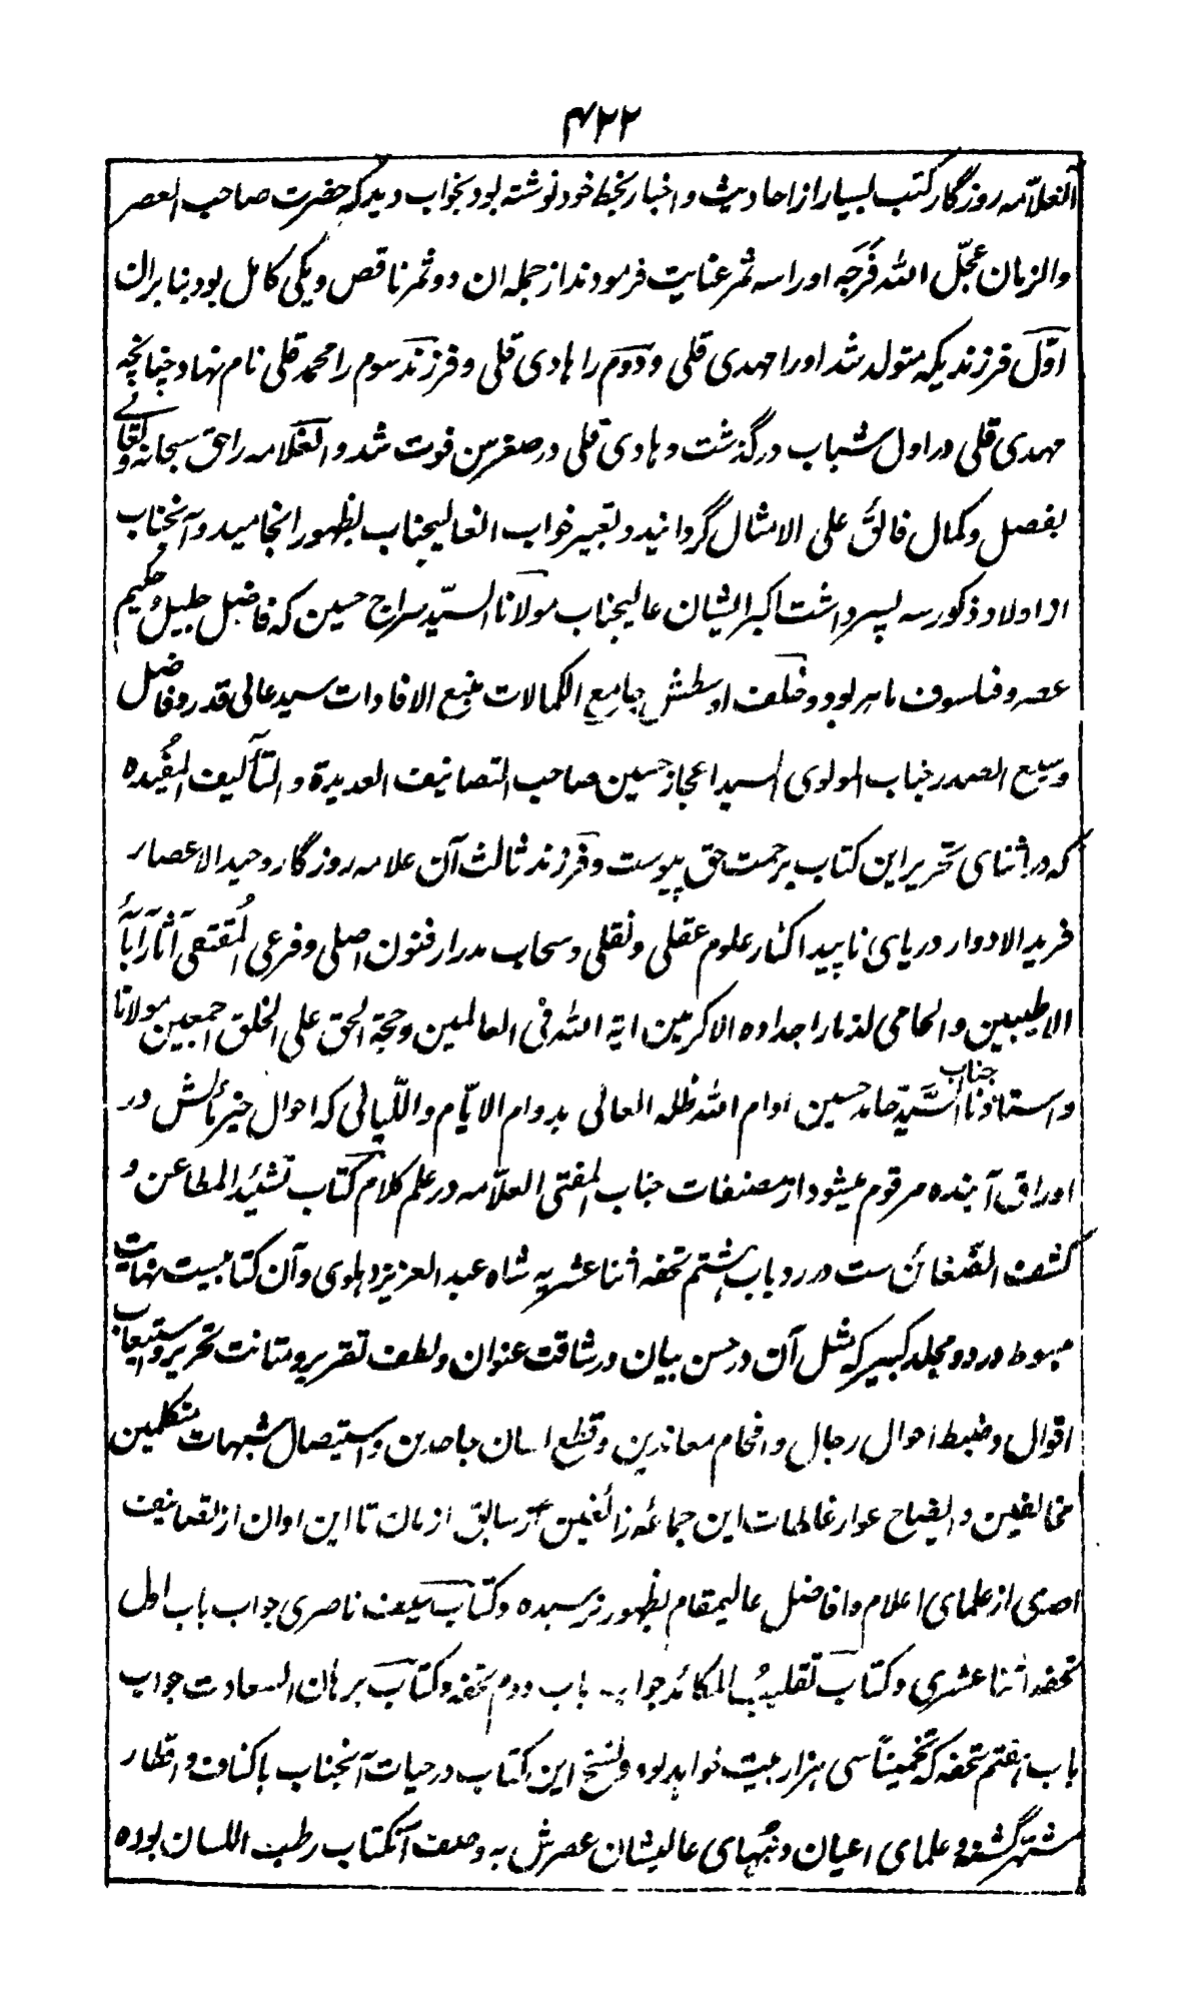 ۴۲۲
آنعلاّمه روزگار کتب بسیار از احادیث و اخبار بخط خود نوشته بود بخواب دید که حضرت صاحب العصر
والزمان عجّل الله فَرَجَه او را سه ثمر عنایت فرمودند از جمله ان دو ثمر ناقص و یکی کامل بود بنا بران
اوّل فرزندیکه متولد شد او را مهدی قلی و دوم را هادی قلی و فرزند سوم را محمد قلی نام نهاد چنانچه
مهدی قلی در اول شباب درگذشت و هادی قلی در صغر سن فوت شد و آنعلامه را حق سبحانه و تعالے
بفضل و کمال فائق علی الامثال گردانید و تعبیر خواب انعالیجناب بظهور انجامید و آنجناب
از اولاد ذکور سه پسر داشت اکبر ایشان عالیجناب مولانا السیّد سراج حسین که فاضل جلیل و حکیم
عصر و فیلسوف ماهر بود و خلف اوسطش جامع الکمالات منبع الافادات سید عالی قدر و فاضل
وسیع الصدر جناب المولوی السید اعجاز حسین صاحب التصانیف العدیدة و التآلیف المُفیده
که در اثنای تحریر این کتاب برحمت حق پیوست و فرزند ثالث آن علامه روزگار وحید الاعصار
فرید الادوار دریای ناپیدا کنار علوم عقلی و نقلی و سحاب مدرار فنون اصلی و فرعی المُقتفی آثار آبائه
الاطیبین و الحامی لذمار اجداده الاکرمین ایة الله فی العالمین و حجة الحق علی الخلق اجمعین مولانا
و استاذنا جناب السَّیّد حامد حسین ادام الله ظله العالی بدوام الایّام و اللّیالی که احوال خیر مآلش در
اوراق آینده مرقوم میشود از مصنفات جناب المفتی العلاّمه در علم کلام کتاب تشئید المطاعن و
کشف الضّغائن ست در رد باب هشتم تحفه اثنا عشریه شاه عبد العزیز دهلوی و آن کتابیست نهایت
مبسوط در دو مجلد کبیر که مثل آن در حسن بیان و رشاقت عنوان و لطف تقریر و متانت تحریر و استیعاب
اقوال و ضبط احوال رجال و افحام معاندین و قطع لسان جاحدین و استیصال شبهات متکلمین
مخالفین و ایضاح عوار غالطات این جماعه زائغین از سابق ازمان تا این اوان از تصانیف
احدی از علمای اعلام و افاضل عالیمقام بظهور نرسیده و کتاب سیف ناصری جواب باب اول
تحفه اثنا عشری و کتاب تقلیب المکائد جواب باب دوم تحفه و کتاب برهان السعادت جواب
باب هفتم تحفه که تخمیناً سی هزار بیت خواهد بود و نسخ این کتاب در حیات آنجناب باکناف و اقطار
مشتهر گشته و علمای اعیان و نبهای عالیشان عصرش به وصف آنکتاب رطب اللسان بوده